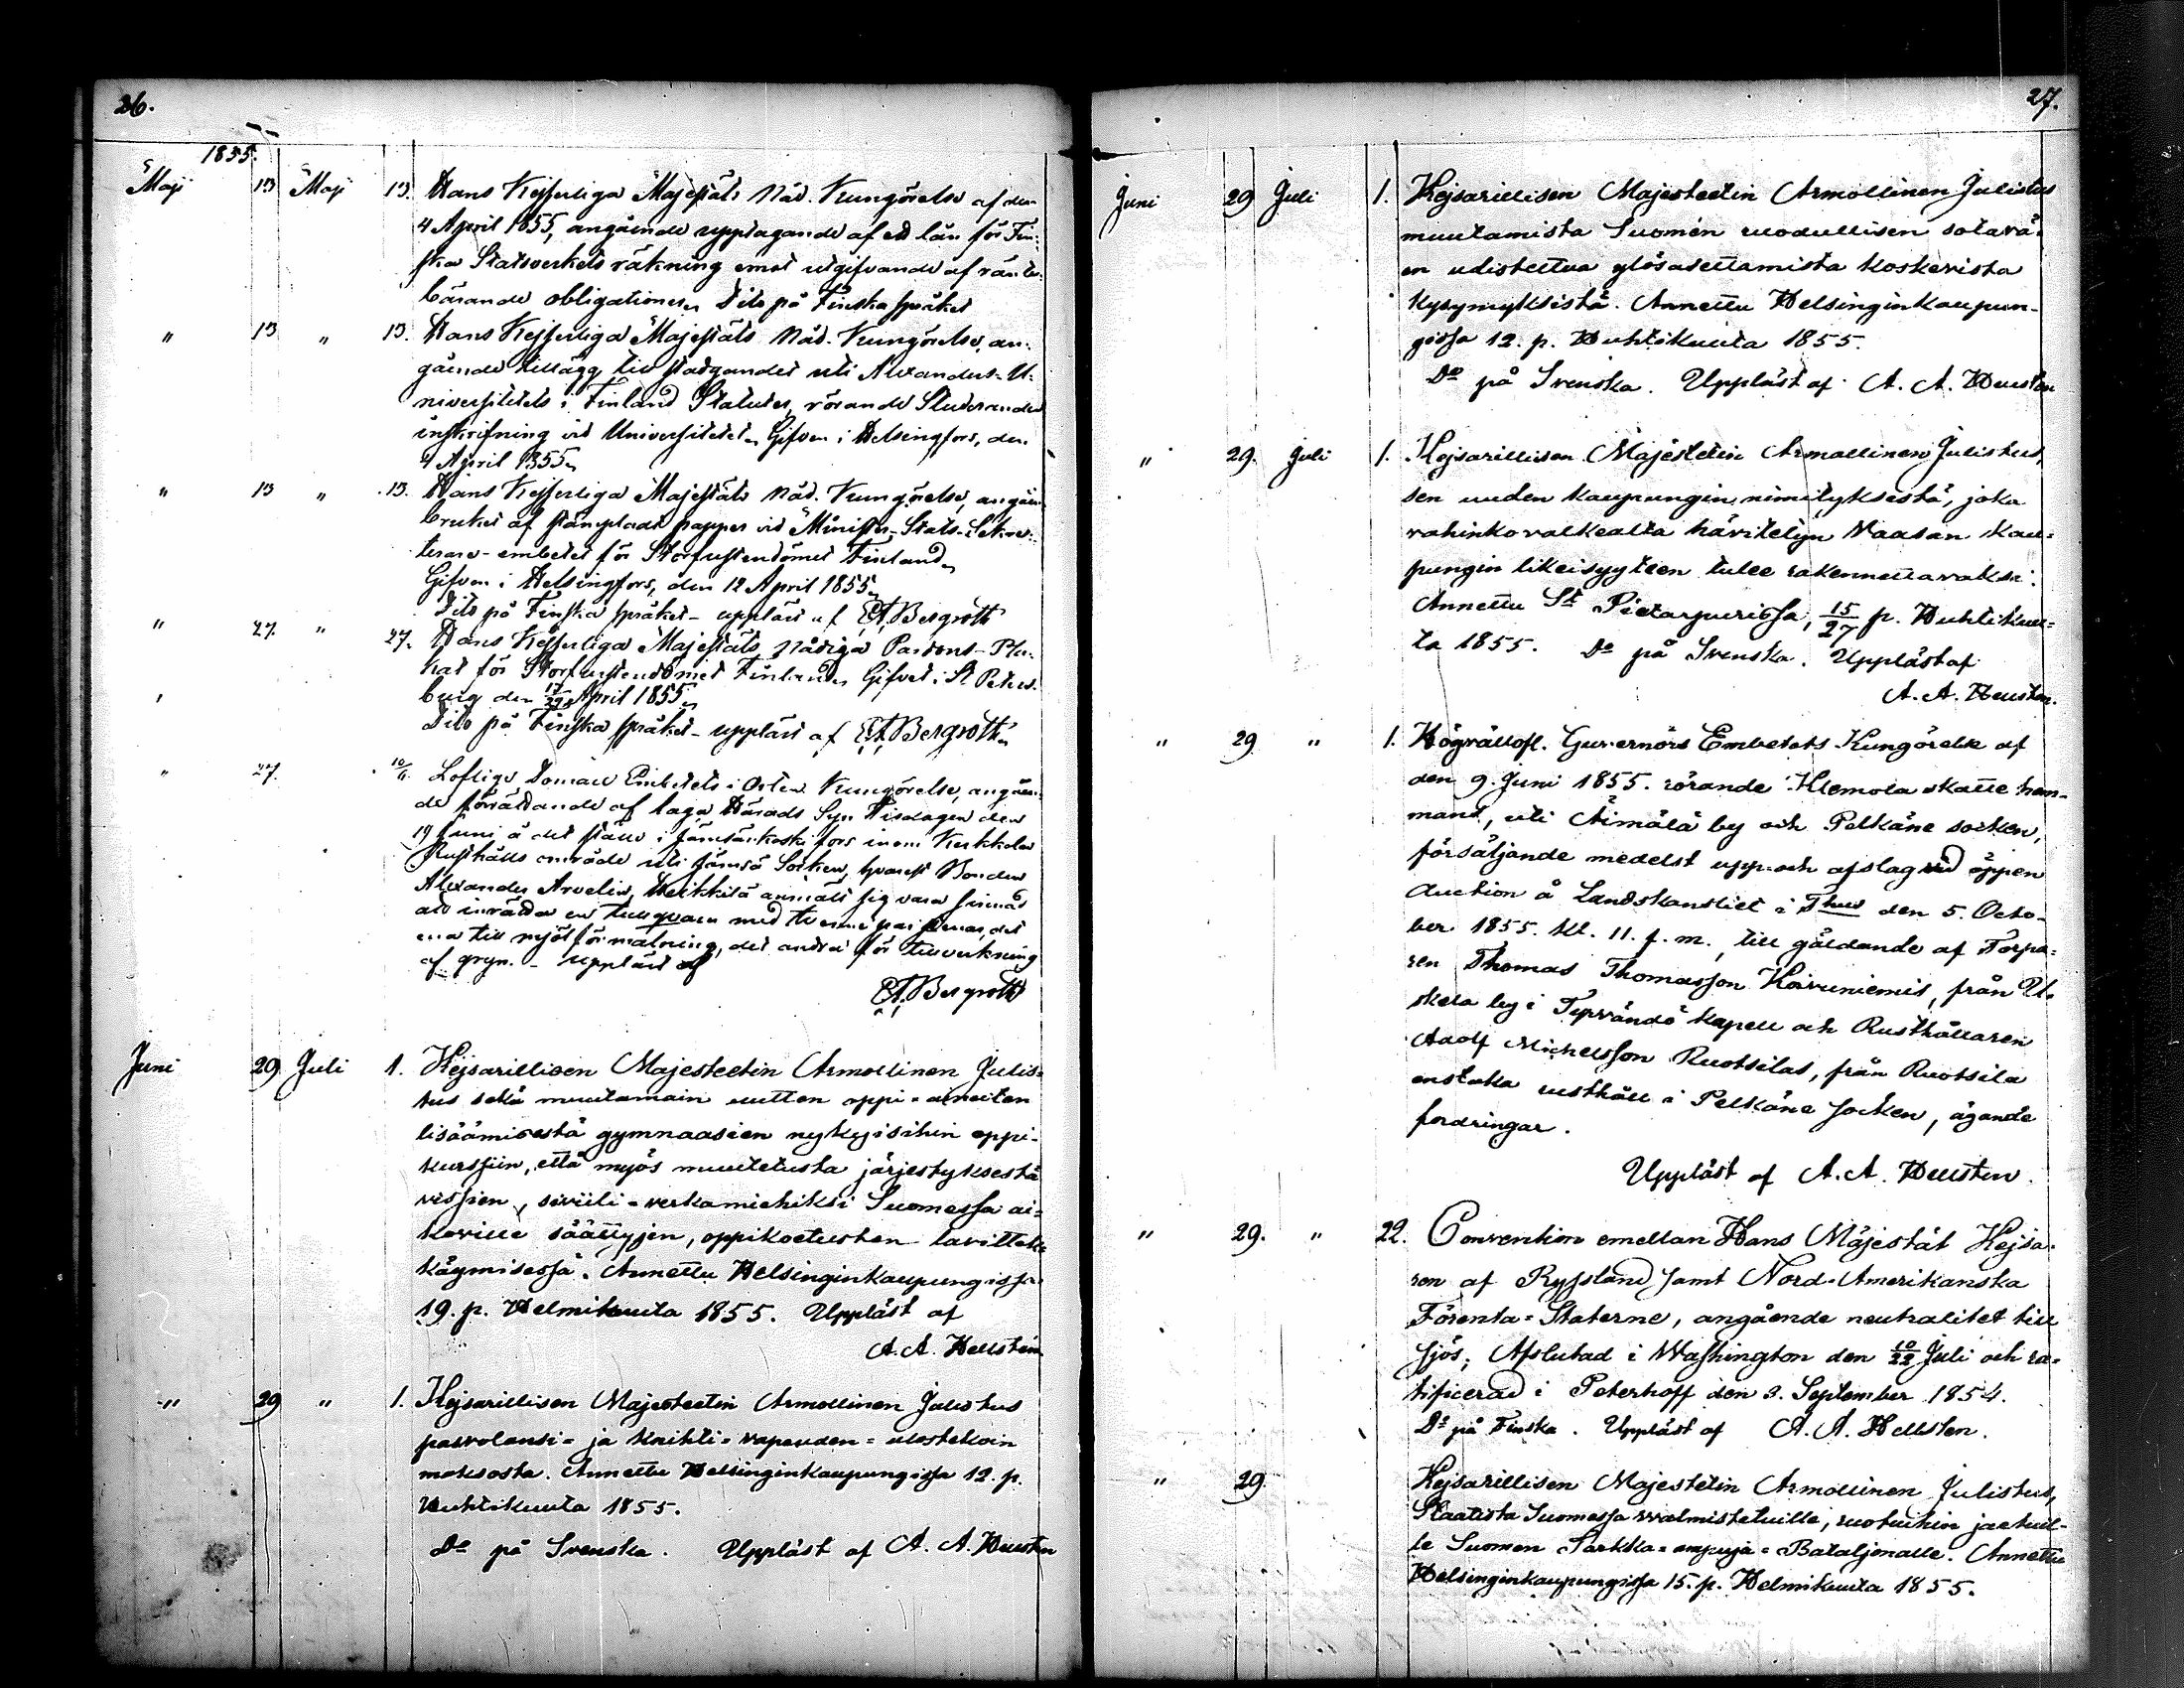 26.
1855.
Maji 13 Maji 13. Hans Kejserliga Majestäts Nåd. Kungörelse af den
4 April 1855, angående upptagande af ett lån för Fin-
ska Statsverkets räkning emot utgifvande af ränte-
bärande obligationer. Dito på Finska språket
" 13 " 13. Hans Kejserliga Majestäts Nåd. Kungörelse, an-
gående tillägg till stadgandet uti Alexanders-U-
niversitetets i Finland Statuter, rörande Studerandes
inskrifning vid Universitetet. Gifven i Helsingfors, den
4 April 1855.
" 13 " 13. Hans Kejserliga Majestäts Nåd. Kungörelse, angåen
bruket af stämpladt papper vid Minister-Stats-Sekre-
terare-embetet för Storfurstendömet Finland.
Gifven i Helsingfors, den 12 April 1855.
Dito på Finska språket - uppläst af Bergroth
" 27. " 27. Hans Kejserliga Majestäts Nådiga Pardons-Pla-
kat för Storfurstendömet Finland. Gifvet i St Peters-
burg den 17/29 April 1855.
Dito på Finska språket - uppläst af Bergroth.
" 27. 10/6. Loflige Domare Embetets i Orten Kungörelse, angåen-
de förrättande af laga Härads Syn Tisdagen den
19 Juni å det ställe i Jämsänkoski fors inom Kerkkola
Rusthålls område uti Jämsä Socken, hvarest Bonden
Alexander Arvelin, Heikkilä anmält sig vara sinnad
att inrätta en tullqvarn med tvenne par stenar, det
ena till mjölförmalning, det andra för tillverkning
af gryn. - uppläst af
Bergroth
Juni 29 Juli 1. Kejsarillisen Majesteetin Armollinen Julis-
tus sekä muutamain uutten oppi-aineiten
lisäämisestä gymnaasien nykyisihin oppi-
kurssiin, että myös muutetusta järjestyksestä
vissien, siviili-virkamiehiksi Suomessa ai-
koville säättyjen, oppikoetusten
käymisessä. Annettu Helsinginkaupungissa
19. p. Helmikuuta 1855. Uppläst af
A. A. Hellsten
" 29 " 1. Kejsarillisen Majesteetin Armollinen Julistus
ja knihti-vapauden-ulostekoin
maksosta. Annettu Helsinginkaupungissa 12. p.
Huhtikuuta 1855.
Do på Svenska. Uppläst af A. A. Hellsten
27.
Juni 29 Juli 1. Kejsarillisen Majesteetin Armollinen Julistus
muutamista Suomen ruodullisen sotavä-
en udistettua ylösasettamista koskevista
kysymyksistä. Annettu Helsinginkaupun-
gissa 12. p. Huhtikuuta 1855.
Do på Svenska. Uppläst af A. A. Hellsten
" 29. Juli 1. Kejsarillisen Majestetin Armollinen Julistus,
sen uuden kaupungin nimityksestä, joka
vahinkovalkealta hävitetyn Vaasan kau-
pungin likeisyyteen tulee rakennettavaksi.
Annettu St Pietarpurissa, 15/27 p. Huhtikuu-
ta 1855. Do på Svenska. Uppläst af
A. A. Hellsten.
" 29 " 1. Högvällofl. Guvernörs Embetets Kungörelse af
den 9. Juni 1855. rörande Klemola skatte hem-
mans, uti Äimälä by och Pelkäne socken,
försäljande medelst upp- och afslag vid öppen
Auction å Landskansliet i Thus den 5. Octo-
ber 1855. kl. 11. f. m., till gäldande af Torpa-
ren Thomas Thomasson Koivuniemis, från U-
skela by i Tyrvändö kapell och Rusthållaren
Adolf Michelsson Ruotsilas, från Ruotsila
enstaka rusthåll i Pelkäne socken, ägande
fordringar.
Uppläst af A. A. Hellsten.
" 29. " 22. Convention emellan Hans Majestät Kejsa-
ren af Ryssland samt Nord-Amerikanska
Förenta-Staterne, angående neutralitet till
sjös; Afslutad i Washington den 10/22 Juli och ra-
tificerad i Peterhoff den 3. September 1854.
Do på Finska. Uppläst af A. A. Hellsten.
" 29. Kejsarillisen Majestetin Armollinen Julistus,
Staatista Suomessa walmistetuille, ruotuihin jaetuil-
le Suomen Tarkka-ampuja-Bataljonalle. Annettu
Helsinginkaupungissa 15. p. Helmikuuta 1855.